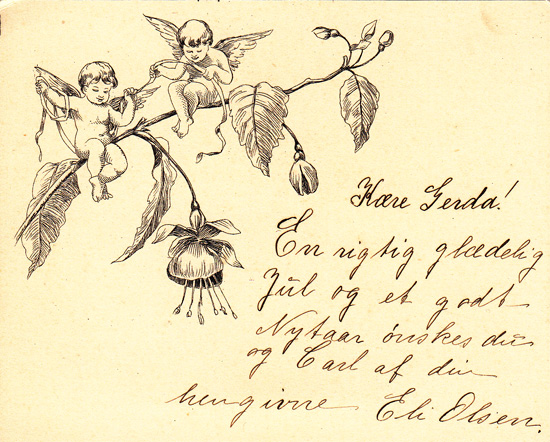 Kære Gerda!
En rigtig glædelig
Jul og et godt
Nytaar ønskes du
og Carl af din
hengivne Eli Olsen.